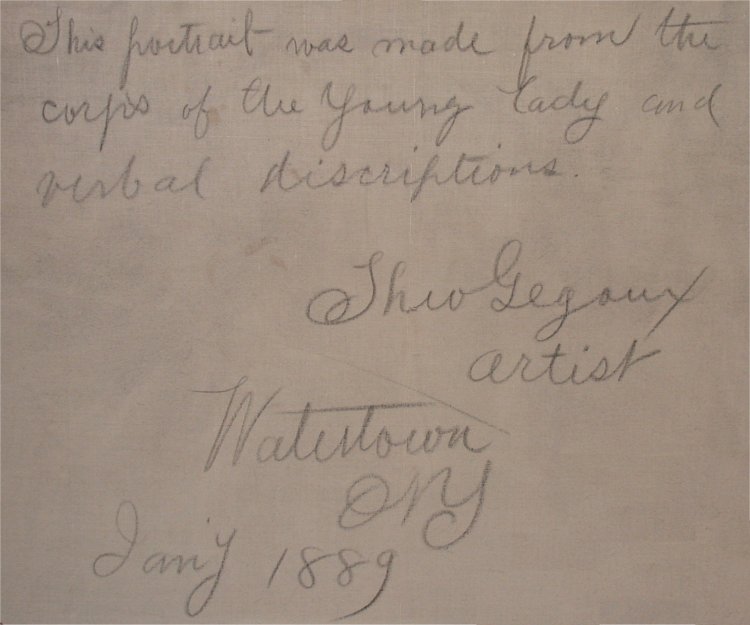 This portrait was made from the
corps of the Young lady and
verbal discriptions.
Theo Gegoux
artist
Watertown
NY
Jan'y 1889